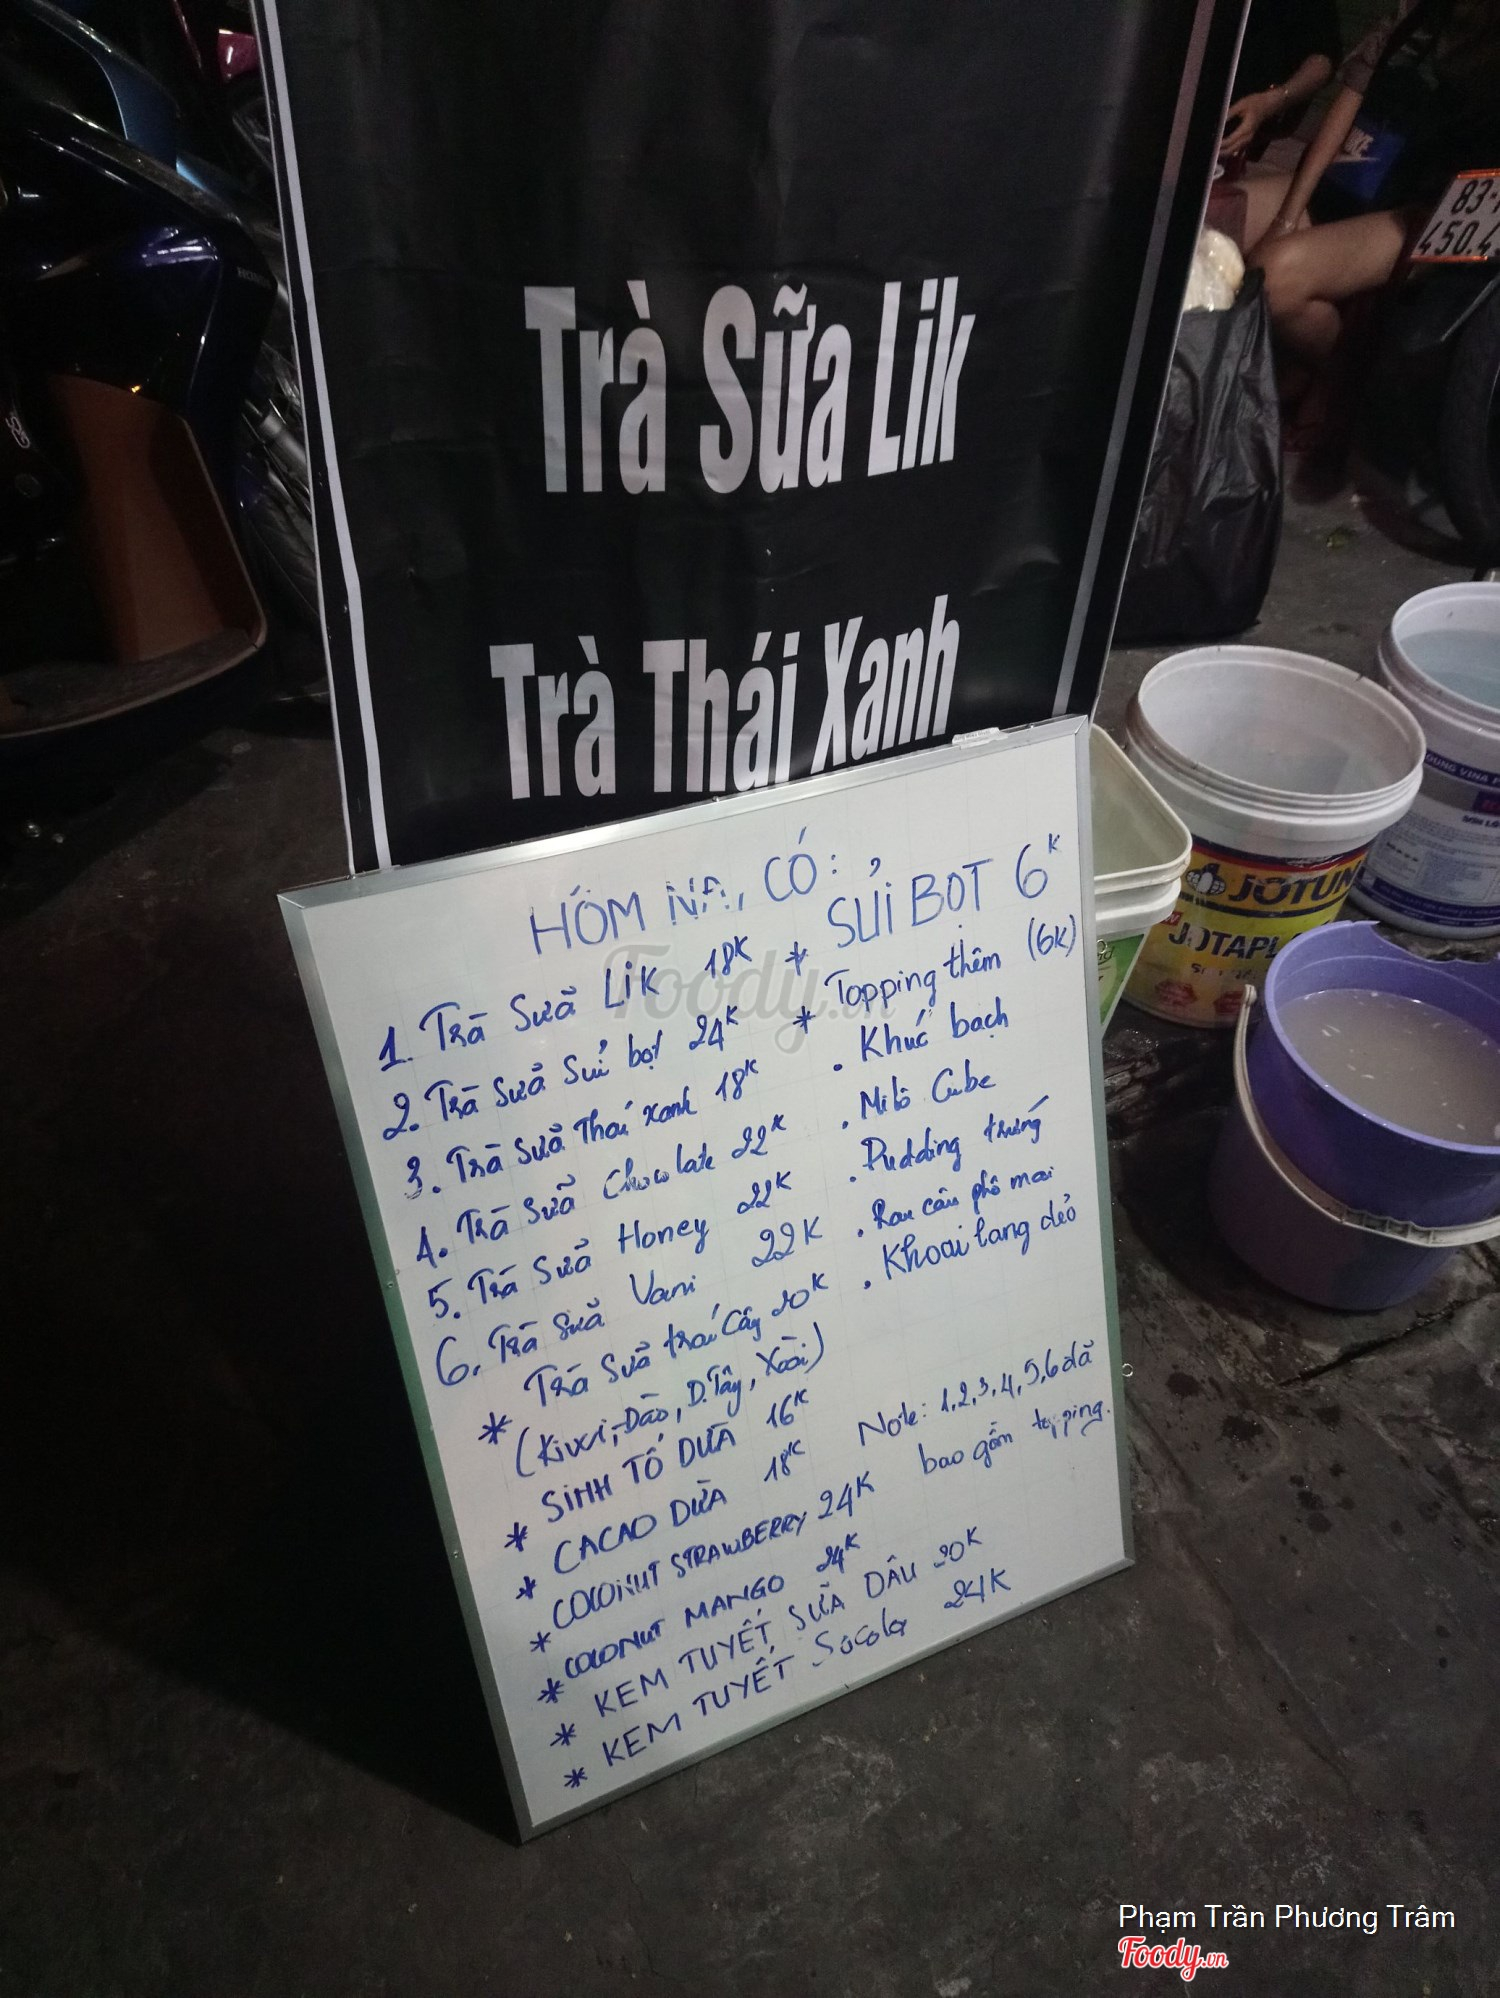 Trà Sữa Lik
Trà Thái Xanh
HÔM NA, CÓ:
1. Trà Sữa Lik 18K
2. Trà Sữa Sủi bọt 24K
3. Trà Sữa Thái xanh 18K
4. Trà Sữa Chocolate 22K
5. Trà Sữa Honey 22K
6. Trà Sữa Vani 22K
* Trà Sữa trái Cây 20K
(Kiwi, Đào, D.Tây, Xoài)
* SINH TỐ DỪA 16K
* CACAO DỪA 18K
* COCONUT STRAWBERRY 24K
* COCONUT MANGO 24K
* KEM TUYẾT SỮA DÂU 20K
* KEM TUYẾT Sôcola 24K
* SỦI BỌT 6K
* Topping thêm (6K)
. Khúc bạch
. Milô Cube
. Pudding trứng
. Rau câu phô mai
. Khoai lang dẻo
Note: 1,2,3,4,5,6 đã
bao gồm topping.
HONDA
83-
450.4
JOTUN
JOTAPL
DUNG VINA P
Phạm Trần Phương Trâm
Foody.vn
Foody.vn